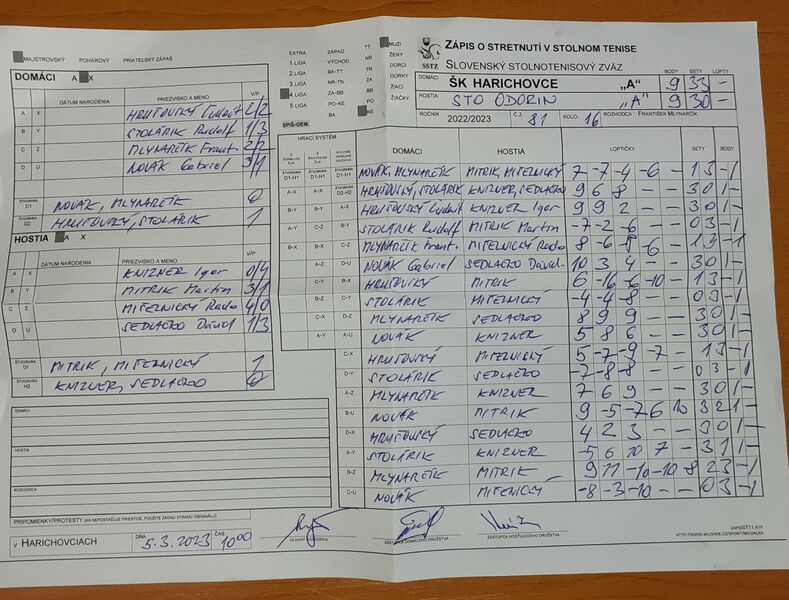 MAJSTROVSKÝ POHÁROVÝ PRIATEĽSKÝ ZÁPAS
EXTRA ZÁPAD TT MUŽI
1.LIGA VÝCHOD NR ŽENY
2.LIGA BA-TT TN DORCI
3.LIGA NR-TN ZA DORKY
4.LIGA ZA-BB BB ŽIACI
5.LIGA PO-KE PO ŽIAČKY
BA KE
SPIŠ-GEM.
SSTZ
ZÁPIS O STRETNUTÍ V STOLNOM TENISE
SLOVENSKÝ STOLNOTENISOVÝ ZVÄZ
BODY SETY LOPTY
DOMÁCI ŠK HARICHOVCE „A" 9 33 -
HOSTIA STO ODORIN „A" 9 30 -
ROČNÍK 2022/2023 Č.Z. 81 KOLO. 16 ROZHODCA : FRANTIŠEK MLYNARČÍK.
DOMÁCI A X
DÁTUM NARODENIA PRIEZVISKO A MENO V/P
A X HRUŠOVSKÝ Ľudovít 2/2
B Y STOLÁRIK Rudolf 1/3
C Z MLYNARČÍK Frant. 2/2
D U NOVÁK Gabriel 3/1
ŠTVORHRA D1 NOVÁK, MLYNARČÍK 0
ŠTVORHRA D2 HRUŠOVSKÝ, STOLÁRIK 1
HOSTIA A X
DÁTUM NARODENIA PRIEZVISKO A MENO V/P
A X KNIZNER Igor 0/4
B Y MITRIK Martin 3/1
C Z MITELNICKÝ Rado 4/0
D U SEDLAČKO Dávid 1/3
ŠTVORHRA D1 MITRIK, MITELNICKÝ 1
ŠTVORHRA H2 KNIZNER, SEDLAČKO 0
HRACÍ SYSTÉM
DOMÁCI HOSTIA LOPTIČKY SETY BODY
NOVÁK, MLYNARČÍK MITRIK, MITELNICKÝ 7 -7 -4 -6 - 1 3 - 1
HRUŠOVSKÝ, STOLÁRIK KNIZNER, SEDLAČKO 9 6 8 - - 3 0 1 -
A-X HRUŠOVSKÝ Ľudovít KNIZNER Igor 9 9 2 - - 3 0 1 -
B-Y STOLÁRIK Rudolf MITRIK Martin -7 -2 -6 - - 0 3 - 1
C-Z MLYNARČÍK Frant. MITELNICKÝ Rado 8 -6 -8 -6 - 1 3 - 1
D-U NOVÁK Gabriel SEDLAČKO Dávid 10 3 4 - - 3 0 1 -
HRUŠOVSKÝ MITRIK 6 -16 -6 -10 - 1 3 - 1
STOLÁRIK MITELNICKÝ -4 -4 -8 - - 0 3 - 1
MLYNARČÍK SEDLAČKO 8 9 9 - - 3 0 1 -
NOVÁK KNIZNER 5 8 6 - - 3 0 1 -
C-X HRUŠOVSKÝ MITELNICKÝ 5 -7 -9 -7 - 1 3 - 1
D-Y STOLÁRIK SEDLAČKO -7 -8 -8 - - 0 3 - 1
A-Z MLYNARČÍK KNIZNER 7 6 9 - - 3 0 1 -
B-U NOVÁK MITRIK 9 -5 -7 6 10 3 2 1 -
D-X HRUŠOVSKÝ SEDLAČKO 4 2 3 - - 3 0 1 -
A-Y STOLÁRIK KNIZNER -5 6 10 7 - 3 1 1 -
B-Z MLYNARČÍK MITRIK 9 11 -10 -10 -8 2 3 - 1
C-U NOVÁK MITENICKÝ -8 -3 -10 - - 0 3 - 1
DOMÁCI
HOSTIA
ROZHODCA
PRIPOMIENKY/PROTESTY (AK NEPOSTAČUJE PRIESTOR, POUŽITE ZADNÚ STRANU ORIGINÁLU)
V HARICHOVCIACH DŇA 5.3.2023 ČAS 10:00
HLAVNÝ ROZHODCA ZÁSTUPCA DOMÁCEHO DRUŽSTVA ZÁSTUPCA HOSŤUJÚCEHO DRUŽSTVA